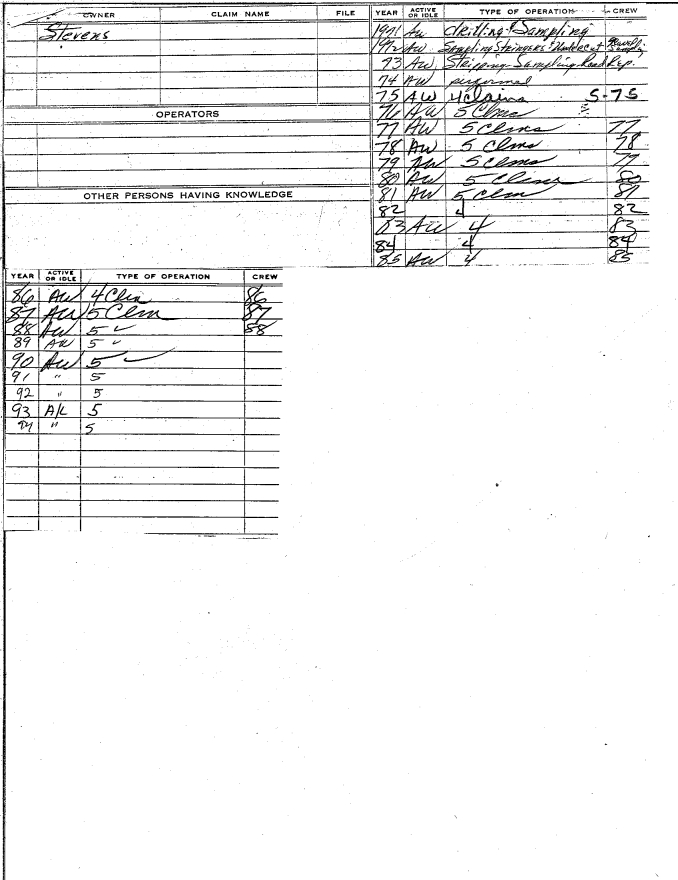 OWNER CLAIM NAME FILE
Stevens
OPERATORS
OTHER PERSONS HAVING KNOWLEDGE
YEAR ACTIVE OR IDLE TYPE OF OPERATION CREW
1971 AW drilling & Sampling
1972 AW Sampling Stringers
73 AW Stripping-Sampling-Road Rep.
74 AW performed
75 AW 4 Claims S-75
76 AW 5 Clms
77 AW 5 Clms 77
78 AW 5 Clms 78
79 AW 5 Clms 79
80 AW 5 Clms 80
81 AW 5 Clm 81
82 4 82
83 AW 4 83
84 4 84
85 AW 4 85
YEAR ACTIVE OR IDLE TYPE OF OPERATION CREW
86 AW 4 Clm 86
87 AW 5 Clm 87
88 AW 5 ✓ 88
89 AW 5 ✓
90 AW 5 ✓
91 " 5
92 " 5
93 A/L 5
94 " 5